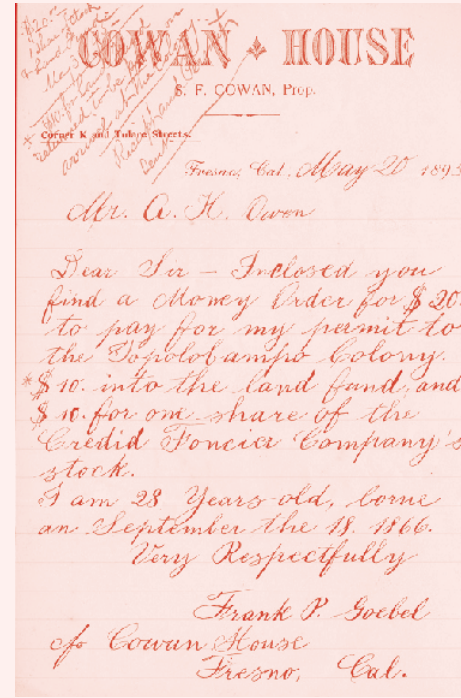 $20.00
COWAN HOUSE
S. F. COWAN, Prop.
Corner K and Tulare Streets.
returned to be paid upon
arrival at the Colony
Receipt and
Sent
Fresno, Cal., May 20 1895
Mr. A. K. Owen
Dear Sir — Inclosed you
find a Money Order for $20.
to pay for my permit to
the Topolobampo Colony.
* $10. into the land fund, and
$10. for one share of the
Credid Foncier Company's
stock.
I am 28 Years old, borne
an September the 18. 1866.
Very Respectfully
Frank P. Goebel
c/o Cowan House
Fresno, Cal.